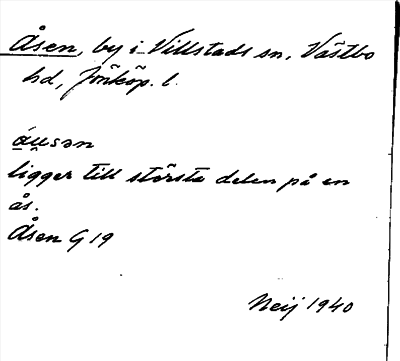 Åsen, by i Villstads sn, Västbo
hd, Jönköp. l.
áu̯sən
ligger till största delen på en
ås.
Åsen G 19
Neij 1940